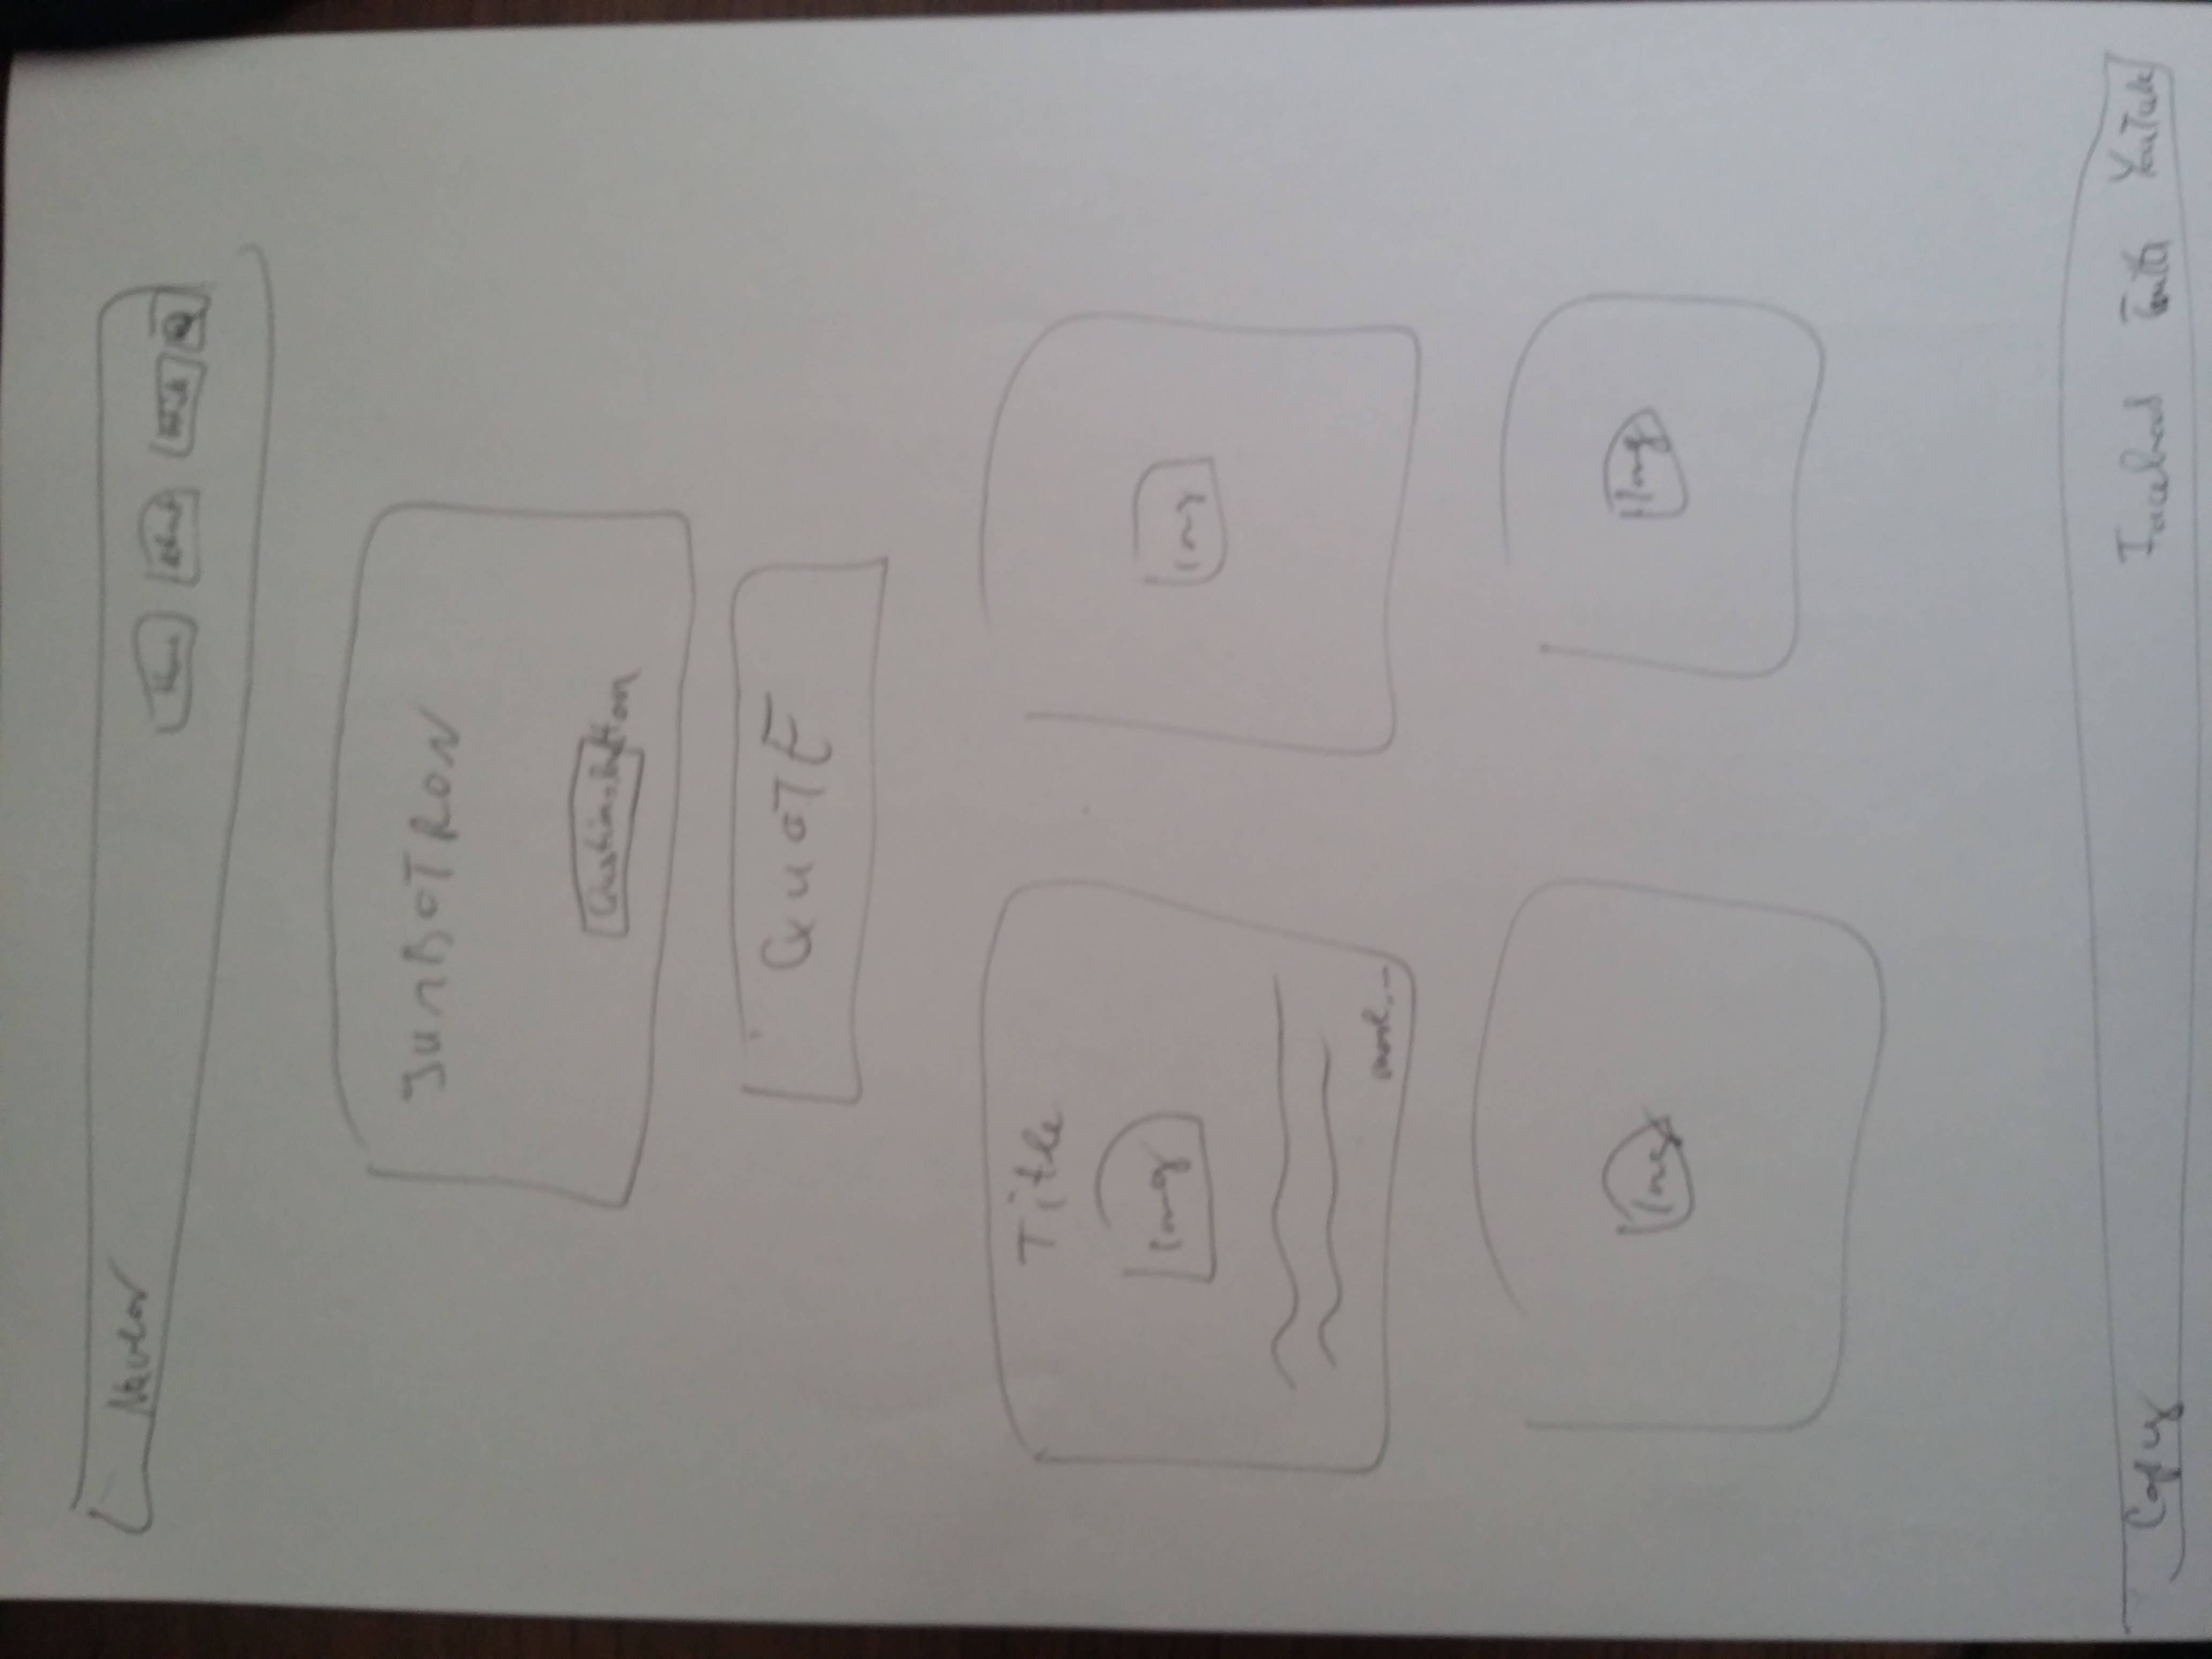 Navbar Home About
JUMBOTRON
Question button
QUOTE
Title
Img Img
more...
Img Img
Copy Facebook Twitter YouTube